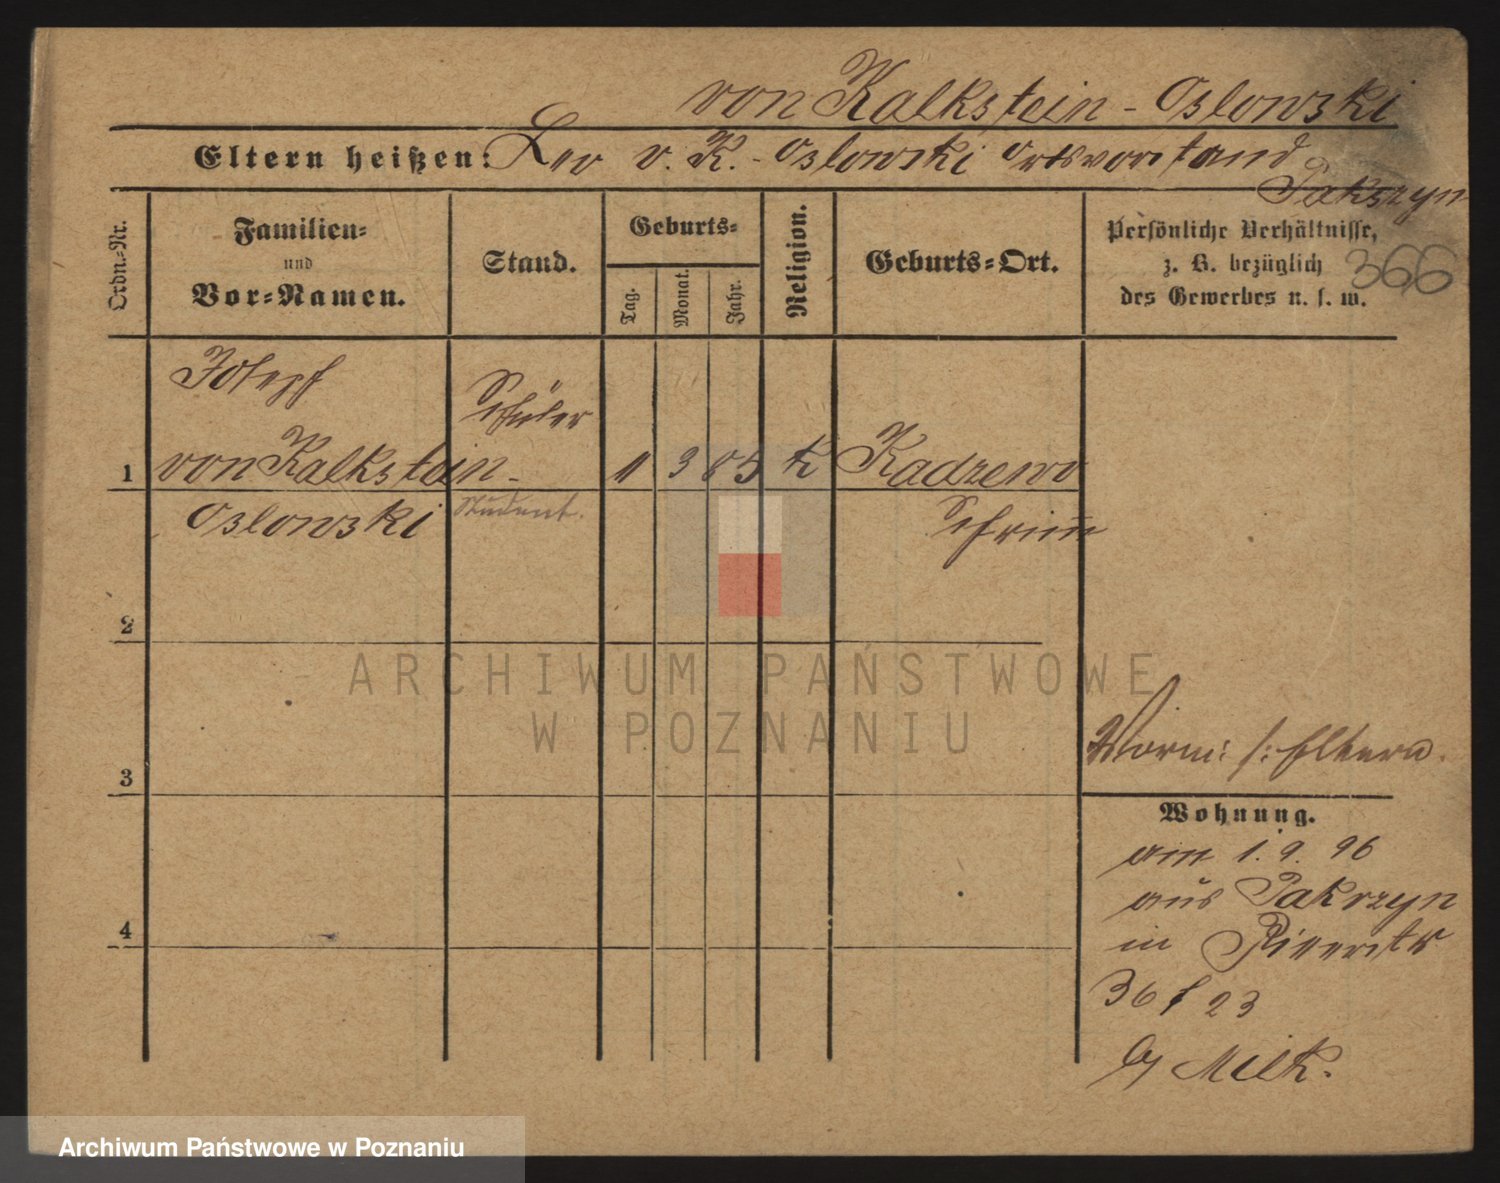 von Kalkstein - Oslowski
Eltern heißen: Leo v. K. - Oslowski Ortsvorstand
Pakszyn
Ordn.-Nr.
Familien-
und
Vor-Namen.
Stand.
Geburts-
Tag.
Monat.
Jahr.
Religion.
Geburts-Ort.
Persönliche Verhältnisse,
z. B. bezüglich
des Gewerbes u. s. w.
366
Josepf
Schüler
1 von Kalkstein - 11 3 85 K Kadzewo
Oslowski Student. Schrimm
2
3
4
Vorm: s: Eltern.
Wohnung.
am 1. 9. 96
aus Pakszyn
in
36 / 23
by Milk.
ARCHIWUM PAŃSTWOWE
W POZNANIU
Archiwum Państwowe w Poznaniu